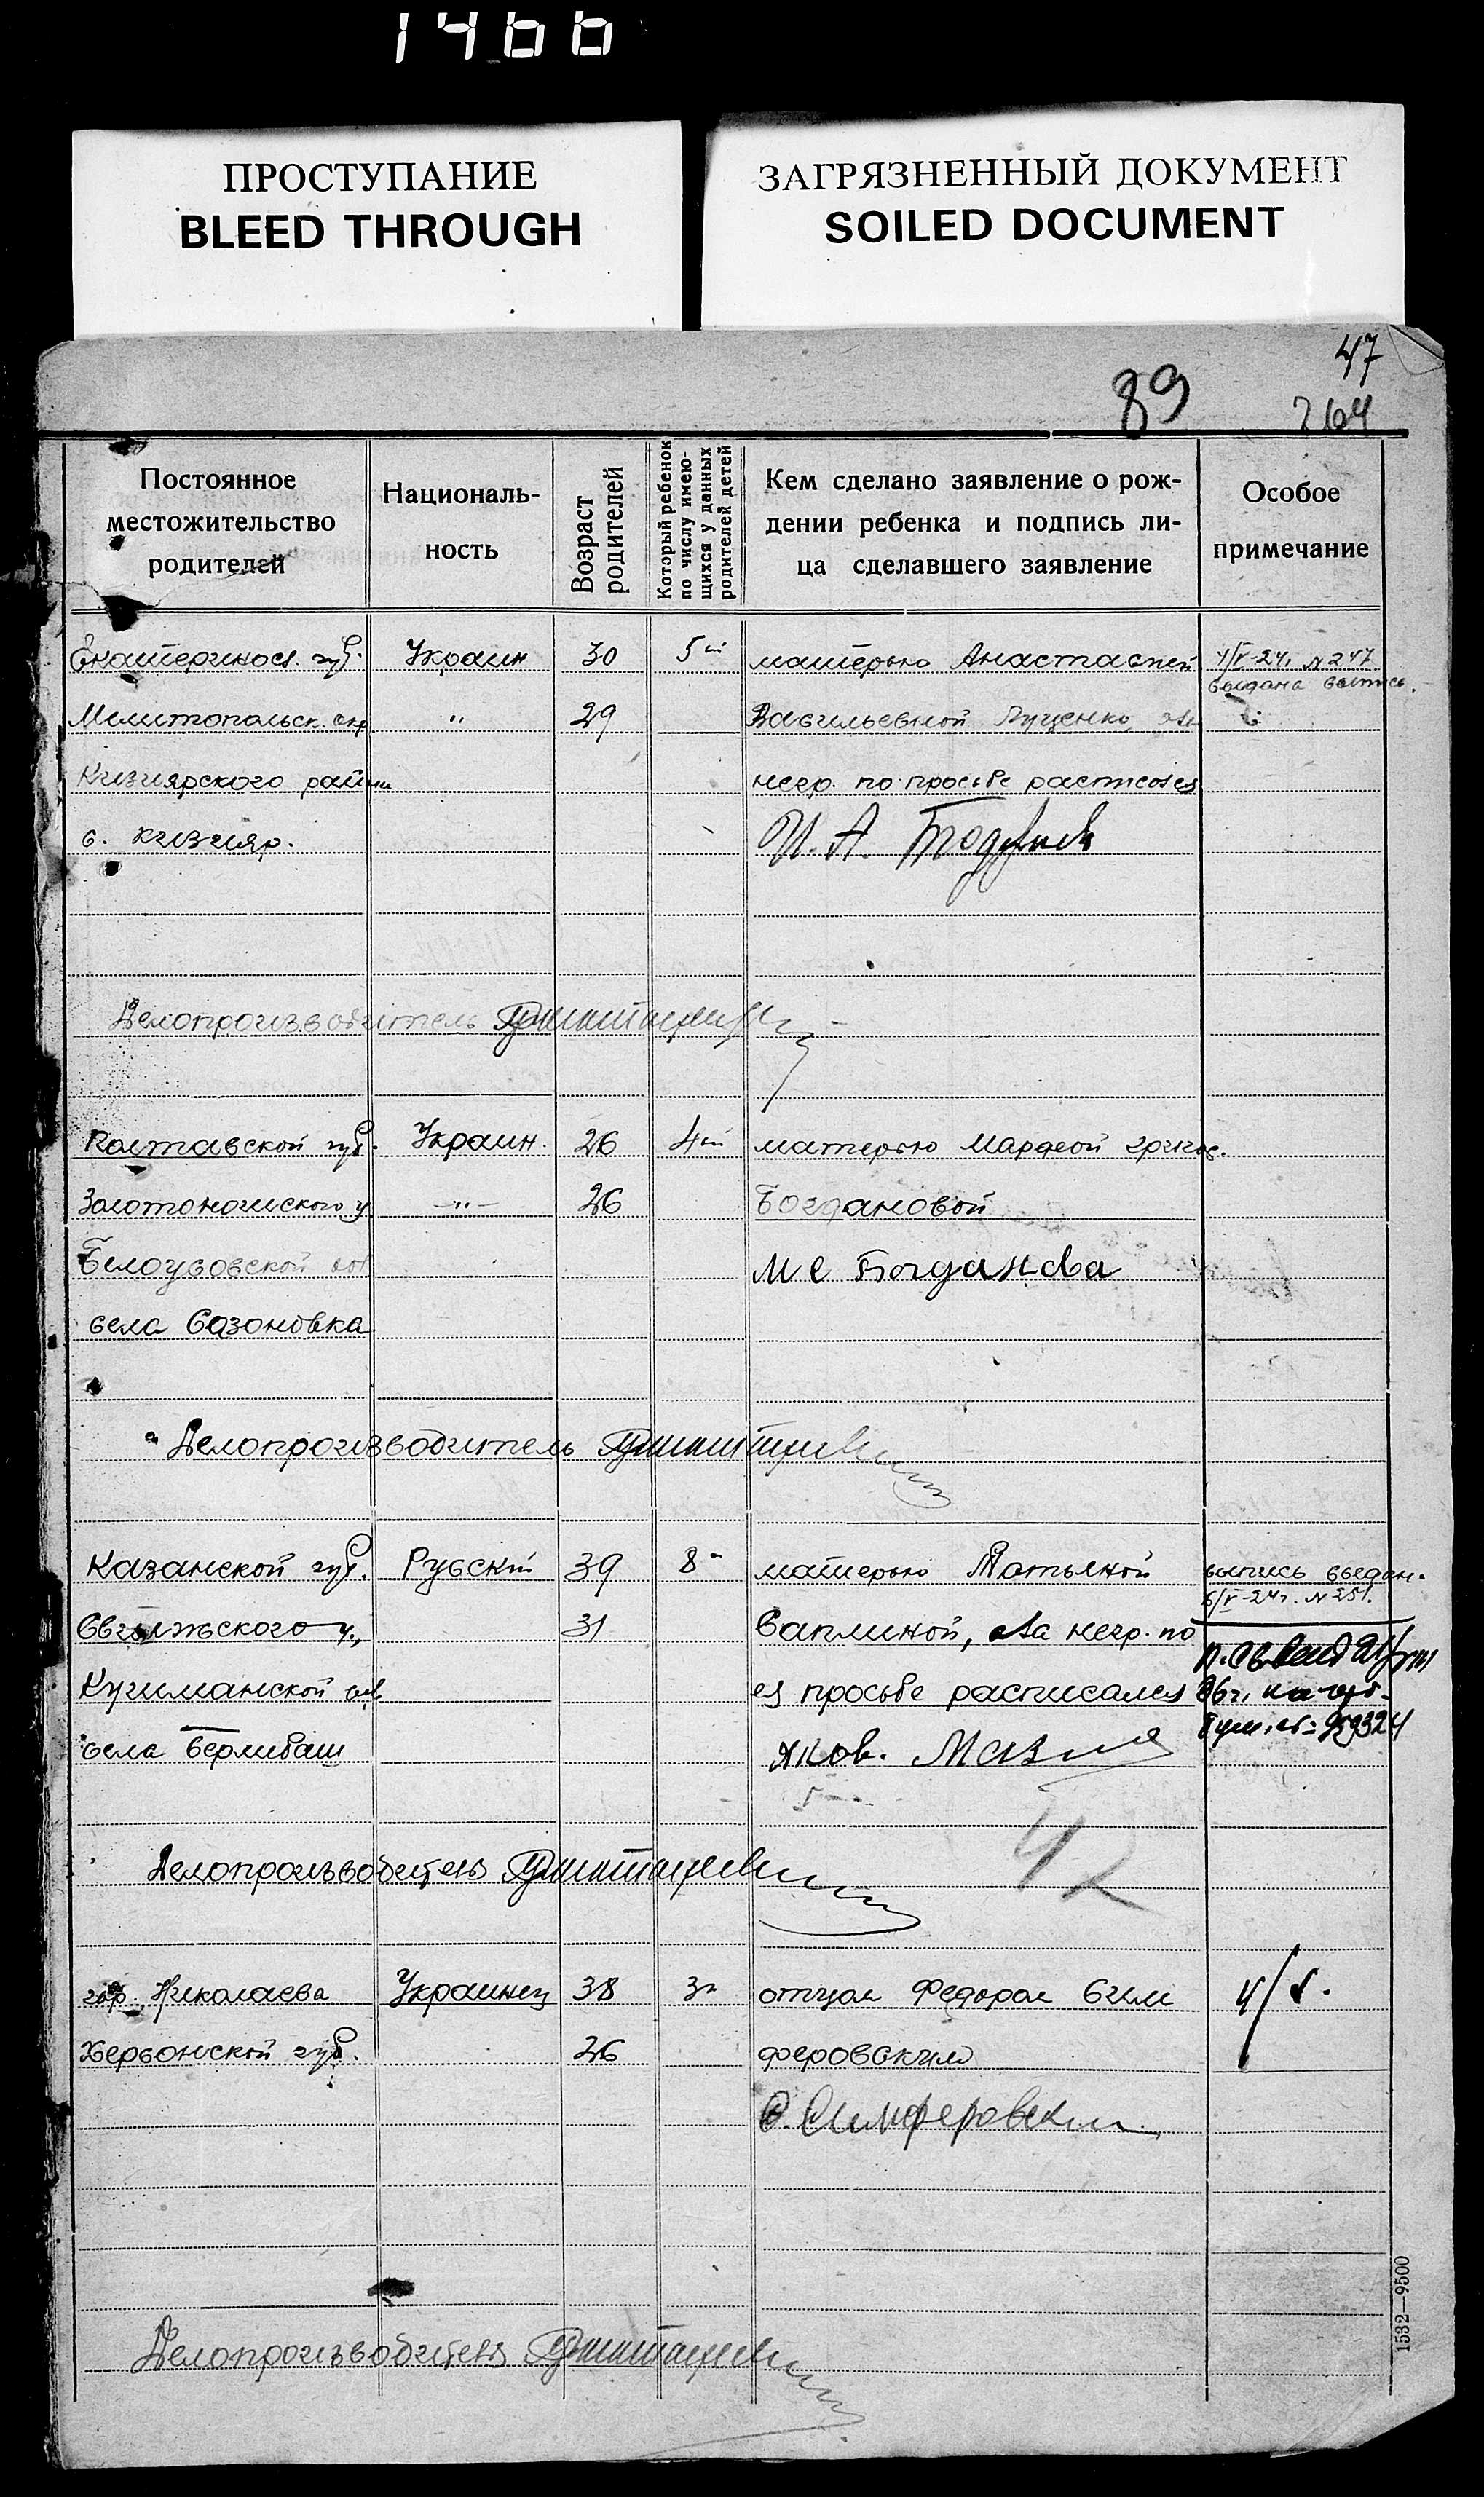 1466
ПРОСТУПАНИЕ
BLEED THROUGH
ЗАГРЯЗНЕННЫЙ ДОКУМЕНТ
SOILED DOCUMENT
47
89
264
Постоянное местожительство родителей
Националь-ность
Возраст родителей
Который ребенок по числу имею-щихся у данных родителей детей
Кем сделано заявление о рож-дении ребенка и подпись ли-ца сделавшего заявление
Особое примечание
Екатеринос. губ. Украин 30 5й матерью Анастасией 4/V-24г. №247
выдана выпись.
Мелитопольск. окр. " 29 Васильевной Луценко, за
Кизиярского района негр. по просьбе расписался
с. Кизияр. И. А.
Делопроизводитель
Полтавской губ. Украин. 26 4й матерью Марфой Григ.
Золотоношского у. -"- 26 Богдановой
Белоусовской вол. М Богданова
села Сазоновка
Делопроизводитель
Казанской губ. Русский 39 8 матерью Татьяной выпись выдан.
6/V-24г. №251.
Свияжского у., 31 Саплиной, за негр. по
ея просьбе расписался
села Бурлибаш Яков.
42
Делопроизводитель
гор. Николаева Украинец 38 3й отцом Федором Сим 4/V.
Херсонской губ. 26 феровским
Симферовский
Делопроизводитель
1532—9500